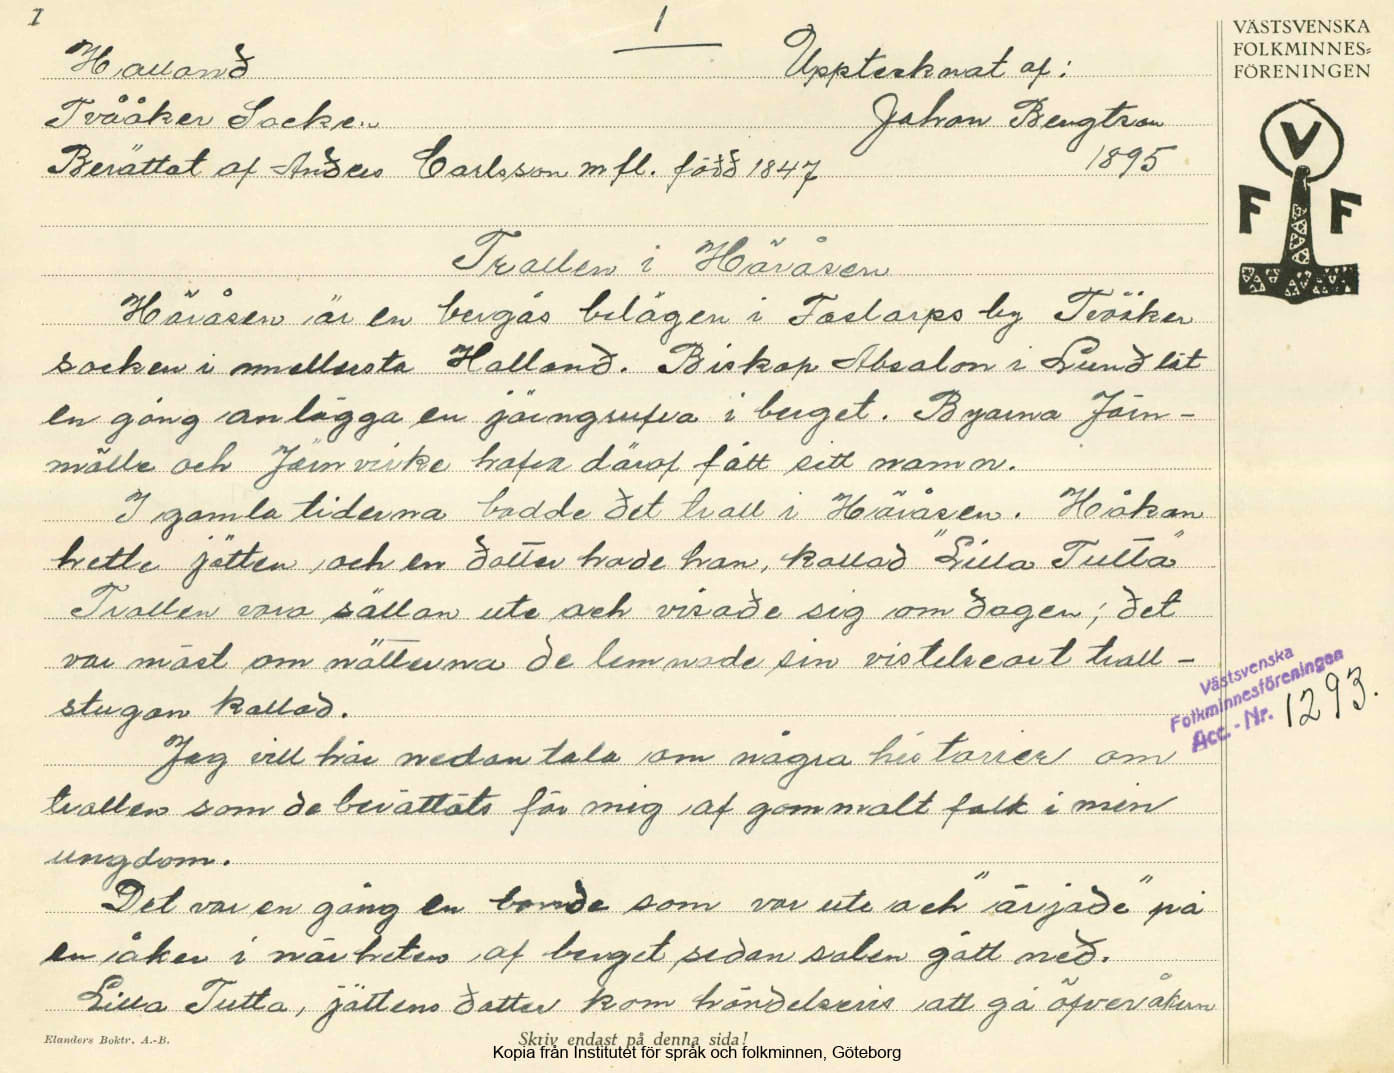 I
1
VÄSTSVENSKA
FOLKMINNES-
FÖRENINGEN
V
F F
Halland
Upptecknat af:
Tvååker Socken
Johan Bengtson
Berättat af Anders Carlsson m fl. född 1847
1895
Trollen i Häråsen
Häråsen är en bergås belägen i Fastarps by Tvååker
socken i mellersta Halland. Biskop Absalon i Lund lät
en gång anlägga en järngrufva i berget. Byarna Järn-
mölle och Järnvirke hafva däraf fått sitt namn.
I gamla tiderna bodde det troll i Häråsen. Håkan
hette jätten och en dotter hade han, kallad "Lilla Tutta"
Trollen voro sällan ute och visade sig om dagen; det
var mäst om nätterna de lemnade sin vistelseort troll-
stugan kallad.
Jag vill här nedan tala om några historier om
trollen som de berättats för mig af gommalt folk i min
ungdom.
Det var en gång en bonde som var ute och "ärjade" på
en åker i närheten af berget sedan solen gått ned.
Lilla Tutta, jättens dotter kom händelsevis att gå öfver åkern
Västsvenska
Folkminnesföreningen
Acc. - Nr. 1293.
Elanders Boktr. A.-B.
Skriv endast på denna sida!
Kopia från Institutet för språk och folkminnen, Göteborg